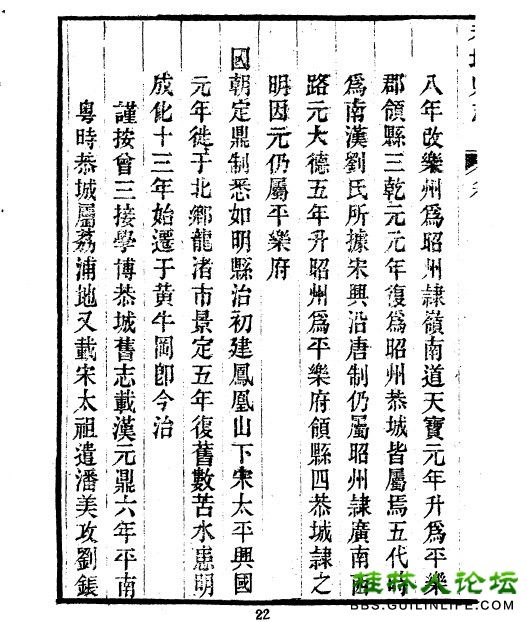 八年改樂州爲昭州隷嶺南道天寶元年升爲平樂
郡領縣三乾元元年復爲昭州恭城皆屬焉五代時
爲南漢劉氏所據宋興沿唐制仍屬昭州隷廣南西
路元大德五年升昭州爲平樂府領縣四恭城隷之
明因元仍屬平樂府
國朝定鼎制悉如明縣治初建鳳凰山下宋太平興國
元年徙于北鄉龍渚市景定五年復舊數苦水患明
成化十三年始遷于黃牛岡卽今治
謹按曾三接學博恭城舊志載漢元鼎六年平南
粵時恭城屬荔浦地又載宋太祖遣潘美攻劉鋹
22
桂林人论坛
BBS.GUILINLIFE.COM